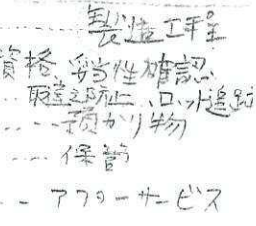 製造工程
資格 妥当性確認
防止、ロット追跡
預かり物
保管
アフターサービス